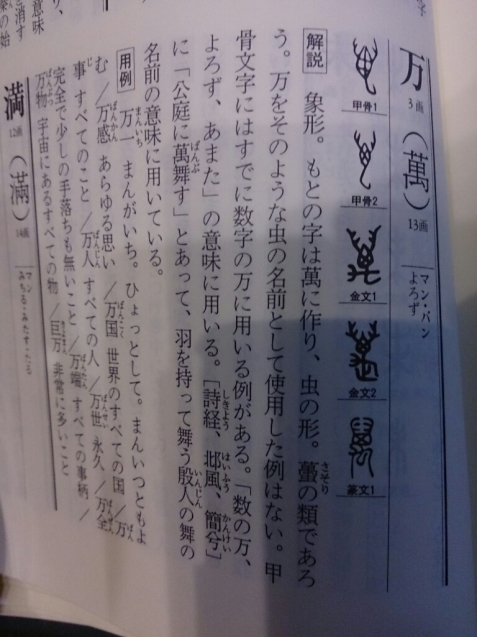 万 3画 （萬） 13画 マン・バン よろず
甲骨1
甲骨2
金文1
金文2
篆文1
解説 象形。もとの字は萬に作り、虫の形。蠆の類であろ
さそり
う。万をそのような虫の名前として使用した例はない。甲
骨文字にはすでに数字の万に用いる例がある。「数の万、
よろず、あまた」の意味に用いる。［詩経、邶風、簡兮］
しきょう はいふう かんけい
に「公庭に萬舞す」とあって、羽を持って舞う殷人の舞の
ばんぶ いんじん
名前の意味に用いている。
用例 万一 まんがいち。ひょっとして。まんいつともよ
まんいち
む／万感 あらゆる思い／万国 世界のすべての国／万
ばんかん ばんこく ばん
事 すべてのこと／万人 すべての人／万世 永久／万全
じ ばんにん ばんせい ばんぜん
完全で少しの手落ちも無いこと／万端 すべての事柄／
ばんたん
万物 宇宙にあるすべての物／巨万 非常に多いこと
ばんぶつ きょまん
満 12画 （滿） 14画 マン みちる・みたす・たる